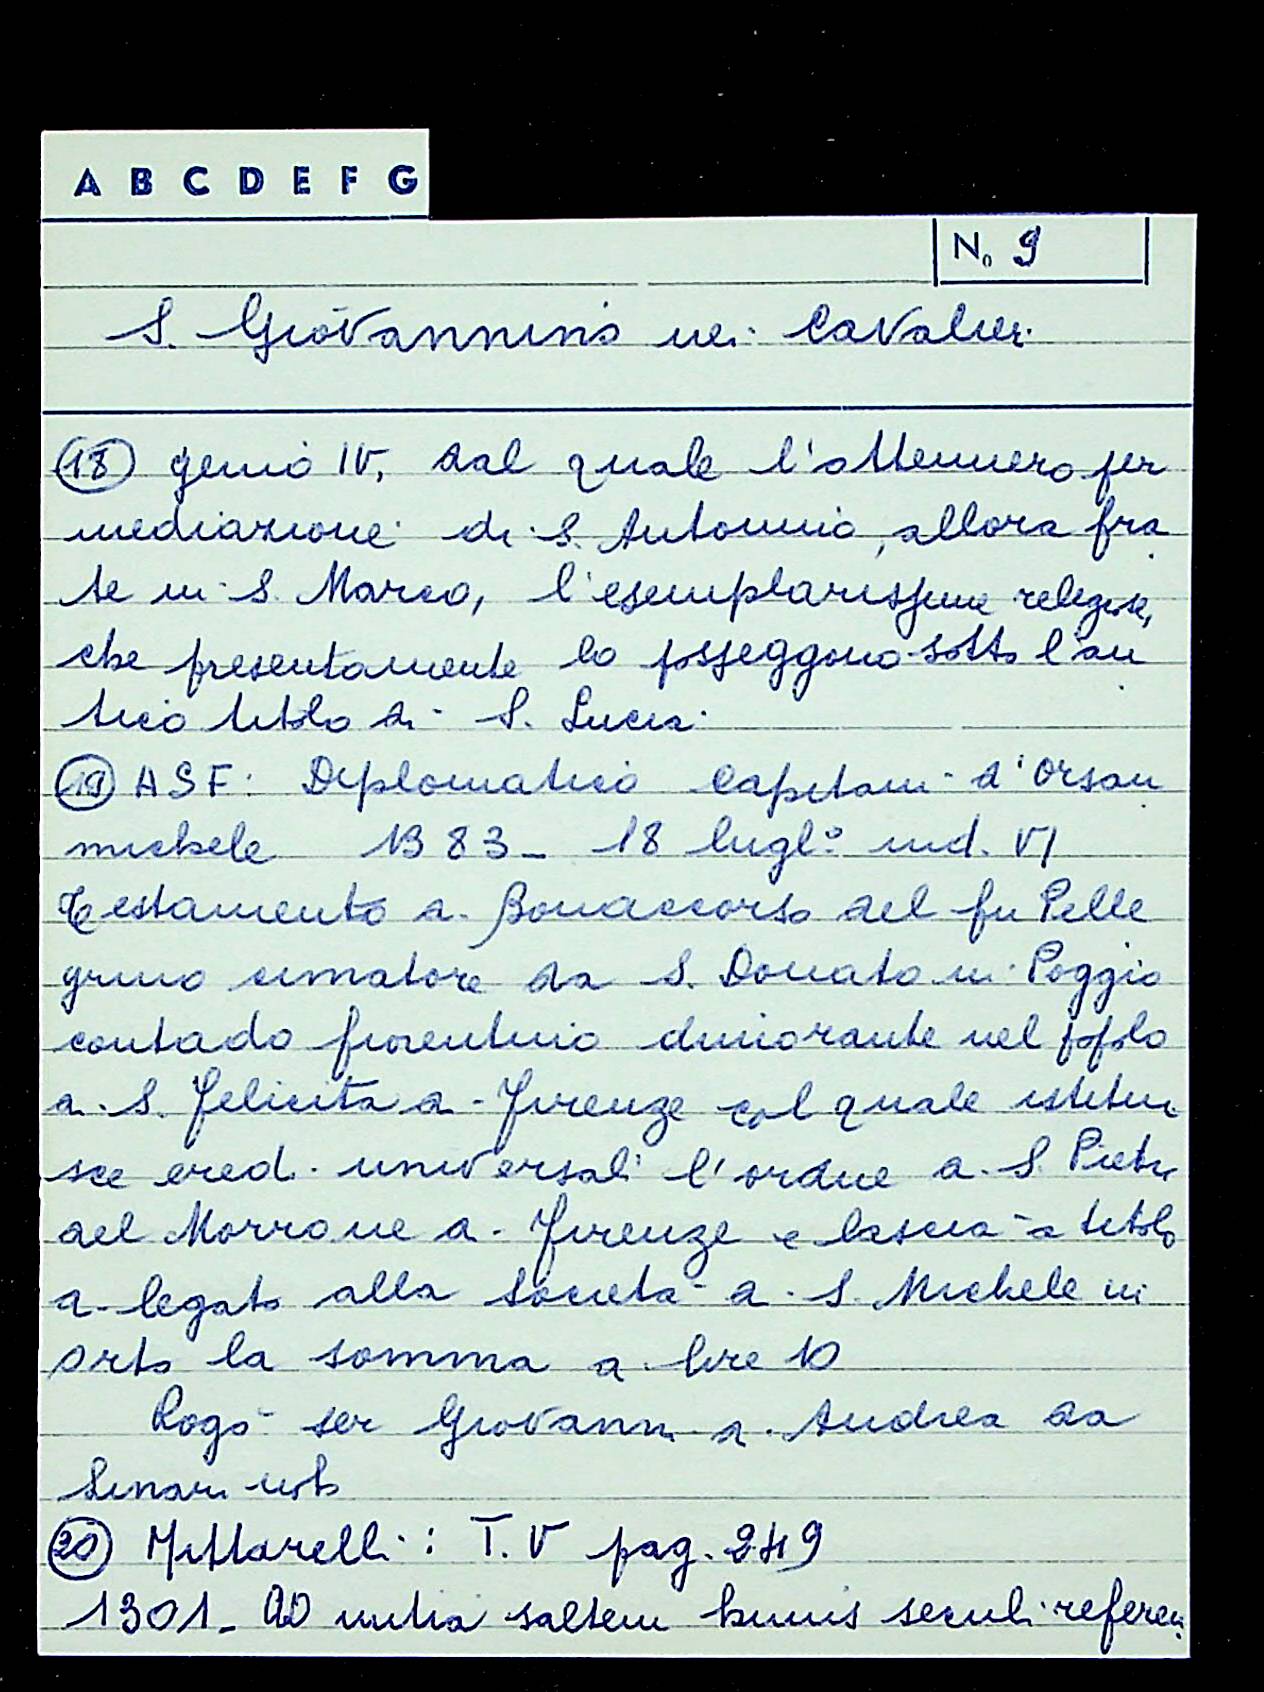 A B C D E F G
No 9
S. Giovannino nei Cavalieri
(18) genio IV, dal quale l'ottennero per
mediazione di S. Antonino, allora fra
te in S. Marco, l'esemplarissime religiose,
che presentamente lo posseggono sotto l'an
tico titolo di S. Lucia.
(19) ASF: Diplomatico Capitani d'Orsan
michele 1383 - 18 lugl° ind. VI
Testamento di Bonaccorso del fu Pelle
grino cimatore da S. Donato in Poggio
contado fiorentino dimorante nel popolo
di S. Felicita di Firenze col quale istitui
sce eredi universali l'ordine di S. Pietro
del Morrone di Firenze e lascia a titolo
di legato alla Società di S. Michele in
Orto la somma di lire 10
Rogò ser Giovanni di Andrea da
(20) Mittarelli: T. V pag. 249
1301 - Ad initia saltem huius seculi referen